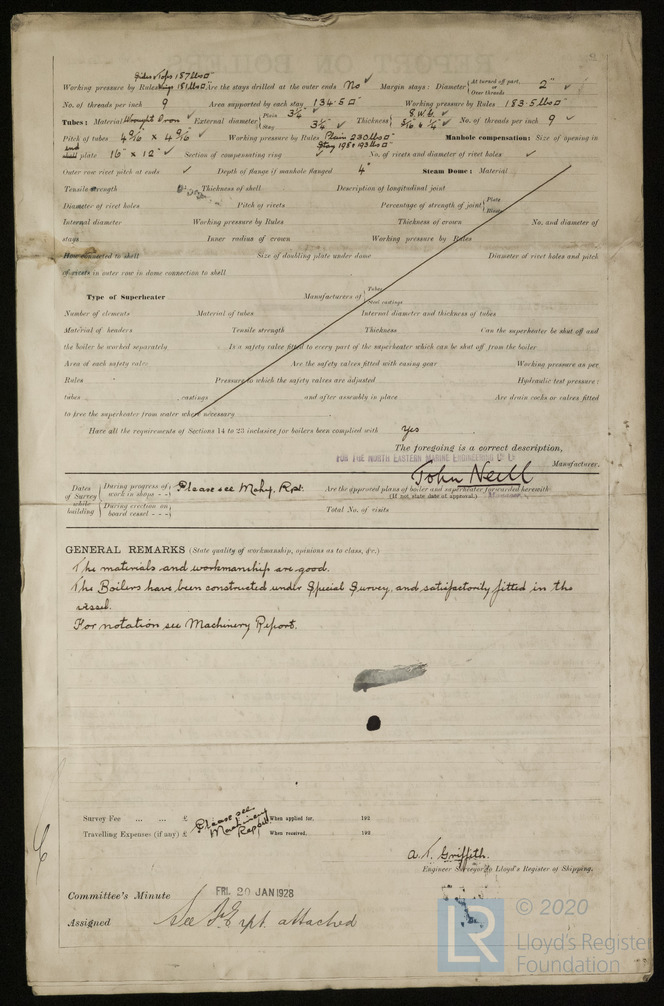 Sides & Tops 187 lbs □"
Working pressure by Rules 181 lbs □" Are the stays drilled at the outer ends No ✓ Margin stays: Diameter { At turned off part, or Over threads 2" ✓
No. of threads per inch 9 Area supported by each stay 134.5 □" Working pressure by Rules 183.5 lbs □"
Tubes: Material Wrought Iron ✓ External diameter { Plain 3¼" ✓ Stay 3¼ ✓ Thickness { 8 W.G. ✓ 5/16 & ¼" ✓ No. of threads per inch 9 ✓
Pitch of tubes 4 9/16 × 4 9/16 ✓ Working pressure by Rules Plain 230 lbs □" Stay 198 & 193 lbs □" Manhole compensation: Size of opening in
end
shell plate 16" × 12" ✓ Section of compensating ring ✓ No. of rivets and diameter of rivet holes ✓
Outer row rivet pitch at ends ✓ Depth of flange if manhole flanged 4" Steam Dome: Material
Tensile strength Thickness of shell Description of longitudinal joint
Diameter of rivet holes Pitch of rivets Percentage of strength of joint { Plate Rivets
Internal diameter Working pressure by Rules Thickness of crown No. and diameter of
stays Inner radius of crown Working pressure by Rules
How connected to shell Size of doubling plate under dome Diameter of rivet holes and pitch
of rivets in outer row in dome connection to shell
Type of Superheater Manufacturers of { Tubes Steel castings
Number of elements Material of tubes Internal diameter and thickness of tubes
Material of headers Tensile strength Thickness Can the superheater be shut off and
the boiler be worked separately Is a safety valve fitted to every part of the superheater which can be shut off from the boiler
Area of each safety valve Are the safety valves fitted with easing gear Working pressure as per
Rules Pressure to which the safety valves are adjusted Hydraulic test pressure:
tubes castings and after assembly in place Are drain cocks or valves fitted
to free the superheater from water where necessary
Have all the requirements of Sections 14 to 23 inclusive for boilers been complied with yes
The foregoing is a correct description,
FOR THE NORTH EASTERN MARINE ENGINEERING Co. Ld.
John Neill Manufacturer.
Dates of Survey while building { During progress of work in shops - - Please see Mchy. Rpt. Are the approved plans of boiler and superheater forwarded herewith
(If not state date of approval.)
During erection on board vessel - - - Total No. of visits
GENERAL REMARKS (State quality of workmanship, opinions as to class, &c.)
The materials and workmanship are good.
The Boilers have been constructed under Special Survey, and satisfactorily fitted in the
vessel.
For notation see Machinery Report.
Survey Fee ... ... £ Please see When applied for, 192
Travelling Expenses (if any) £ Machinery Report. When received, 192
A. T. Griffith.
Engineer Surveyor to Lloyd's Register of Shipping.
Committee's Minute FRI. 20 JAN 1928
Assigned See F.E. rpt. attached
LR © 2020
Lloyd's Register
Foundation